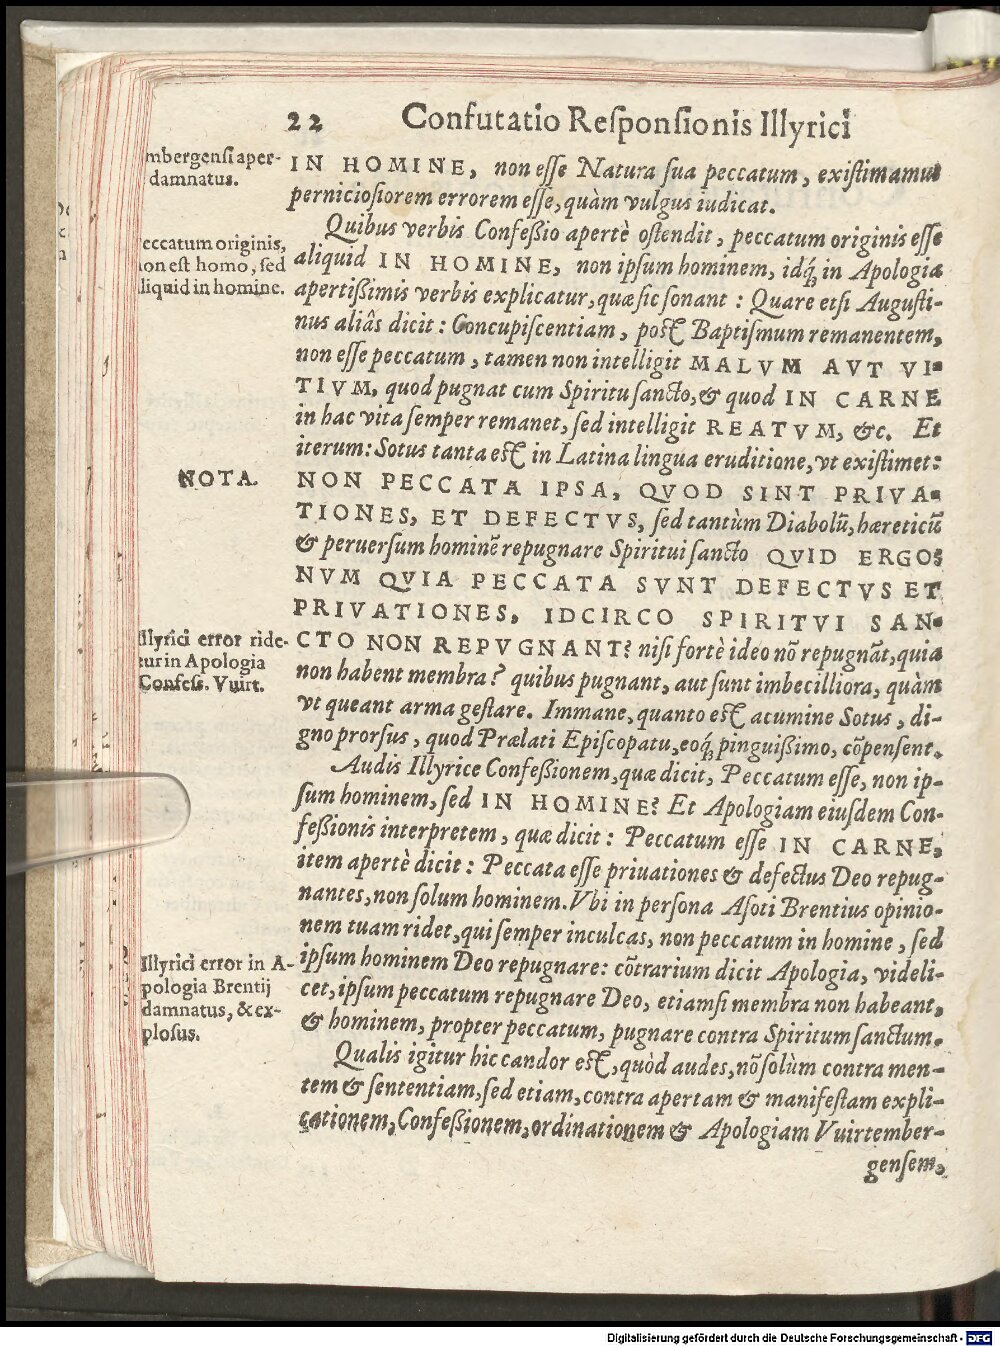 22 Confutatio Reſponſionis Illyrici
mbergenſi aper-
damnatus.
IN HOMINE, non eſſe Natura ſua peccatum, exiſtimamus
pernicioſiorem errorem eſſe, quàm vulgus iudicat.
Quibus verbis Confeßio apertè oſtendit, peccatum originis eſſe
eccatum originis,
non eſt homo, ſed
liquid in homine.
aliquid IN HOMINE, non ipſum hominem, idq́; in Apologia
apertißimis verbis explicatur, quæ ſic ſonant : Quare etſi Auguſti-
nus aliâs dicit : Concupiſcentiam, poſt Baptiſmum remanentem,
non eſſe peccatum, tamen non intelligit MALVM AVT VI-
TIVM, quod pugnat cum Spiritu ſancto, & quod IN CARNE
in hac vita ſemper remanet, ſed intelligit REATVM, &c. Et
iterum: Sotus tanta eſt in Latina lingua eruditione, vt exiſtimet:
NOTA.
NON PECCATA IPSA, QVOD SINT PRIVA-
TIONES, ET DEFECTVS, ſed tantùm Diabolū, hæreticū
& peruerſum hominē repugnare Spiritui ſancto QVID ERGO?
NVM QVIA PECCATA SVNT DEFECTVS ET
PRIVATIONES, IDCIRCO SPIRITVI SAN-
Illyrici error ride-
tur in Apologia
Confeſs. Vuirt.
CTO NON REPVGNANT? niſi fortè ideo nō repugnāt, quia
non habent membra? quibus pugnant, aut ſunt imbecilliora, quàm
vt queant arma geſtare. Immane, quanto eſt acumine Sotus, di-
gno prorſus, quod Prælati Epiſcopatu, eoq́; pinguißimo, cōpenſent.
Audis Illyrice Confeßionem, quæ dicit, Peccatum eſſe, non ip-
ſum hominem, ſed IN HOMINE? Et Apologiam eiuſdem Con-
feßionis interpretem, quæ dicit : Peccatum eſſe IN CARNE,
item apertè dicit : Peccata eſſe priuationes & defectus Deo repug-
nantes, non ſolum hominem. Vbi in perſona Aſoti Brentius opinio-
nem tuam ridet, qui ſemper inculcas, non peccatum in homine, ſed
Illyrici error in A-
pologia Brentij
damnatus, & ex-
ploſus.
ipſum hominem Deo repugnare: cōtrarium dicit Apologia, videli-
cet, ipſum peccatum repugnare Deo, etiamſi membra non habeant,
& hominem, propter peccatum, pugnare contra Spiritum ſanctum.
Qualis igitur hic candor eſt, quòd audes, nō ſolùm contra men-
tem & ſententiam, ſed etiam, contra apertam & manifeſtam expli-
cationem, Confeßionem, ordinationem & Apologiam Vuirtember-
genſem,
Digitalisierung gefördert durch die Deutsche Forschungsgemeinschaft - DFG